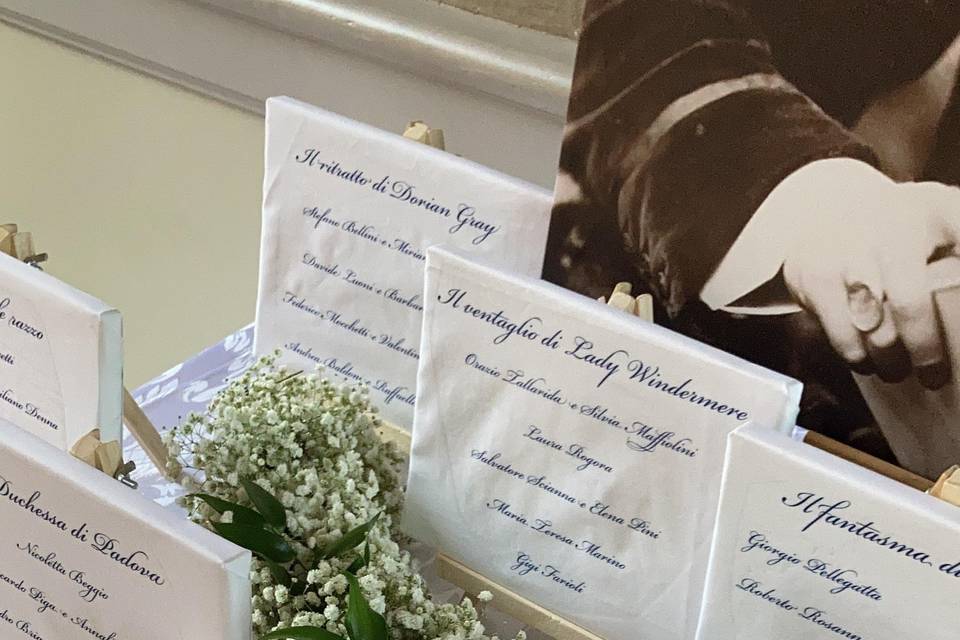 Il ritratto di Dorian Gray
Stefano Bellini e
Davide Luoni e
Federico Mocchetti e
Andrea Baldoni e
Il ventaglio di Lady Windermere
Orazio Tallarida e Silvia Maffiolini
Laura Rogora
Salvatore Scianna e Elena Pini
Maria Teresa Marino
Gigi Farioli
razzo
Denna
Duchessa di Padova
Nicoletta Beggio
Piga e
Il fantasma
Giorgio Pellegatta
Roberto